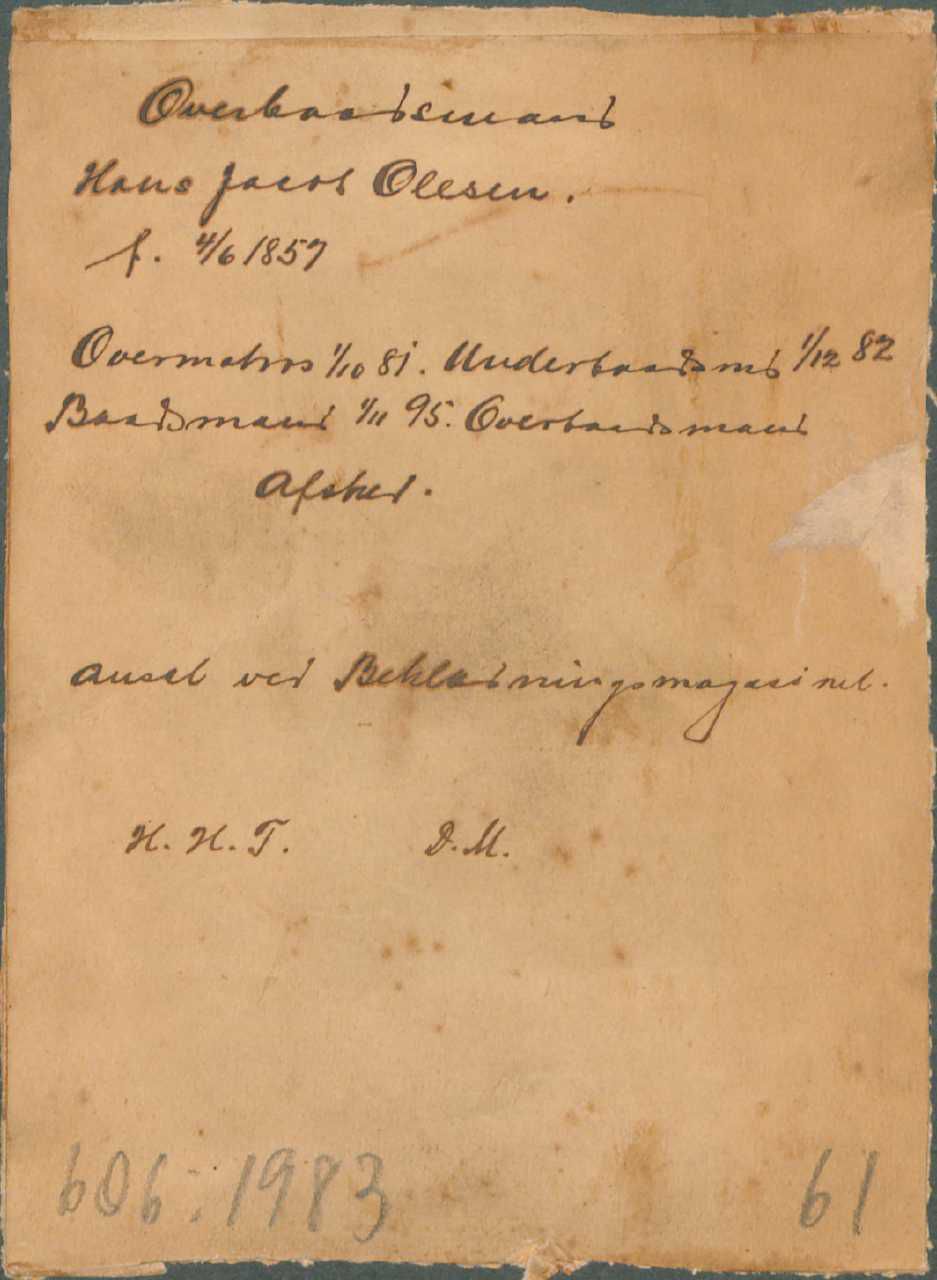 Overbaadsmand
Hans Jacob Olesen.
f. 4/6 1857
Overmatros 1/10 81. Underbaadsmd 1/12 82
Baadsmand 1/11 95. Overbaadsmand
Afsked.
ansat ved Beklædningsmagasinet.
H. H. T. D. M.
606:1983 61